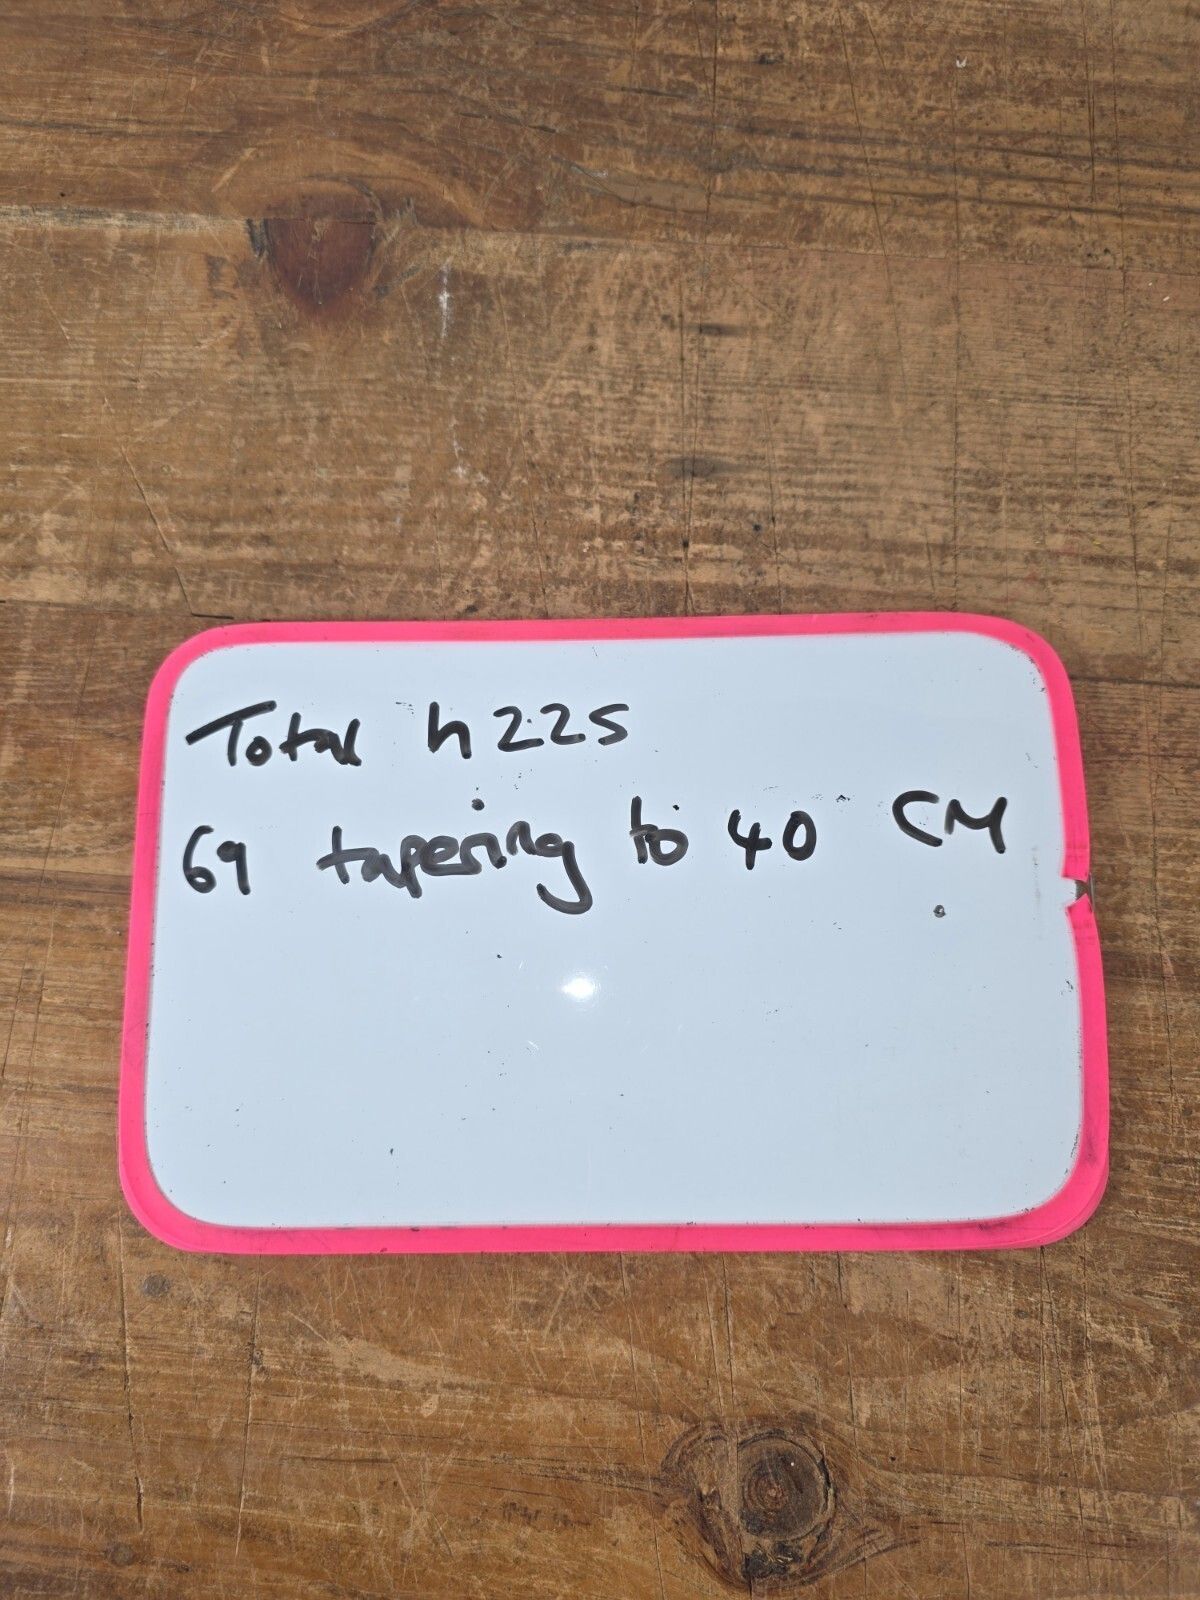 Total h 225
69 tapering to 40 CM